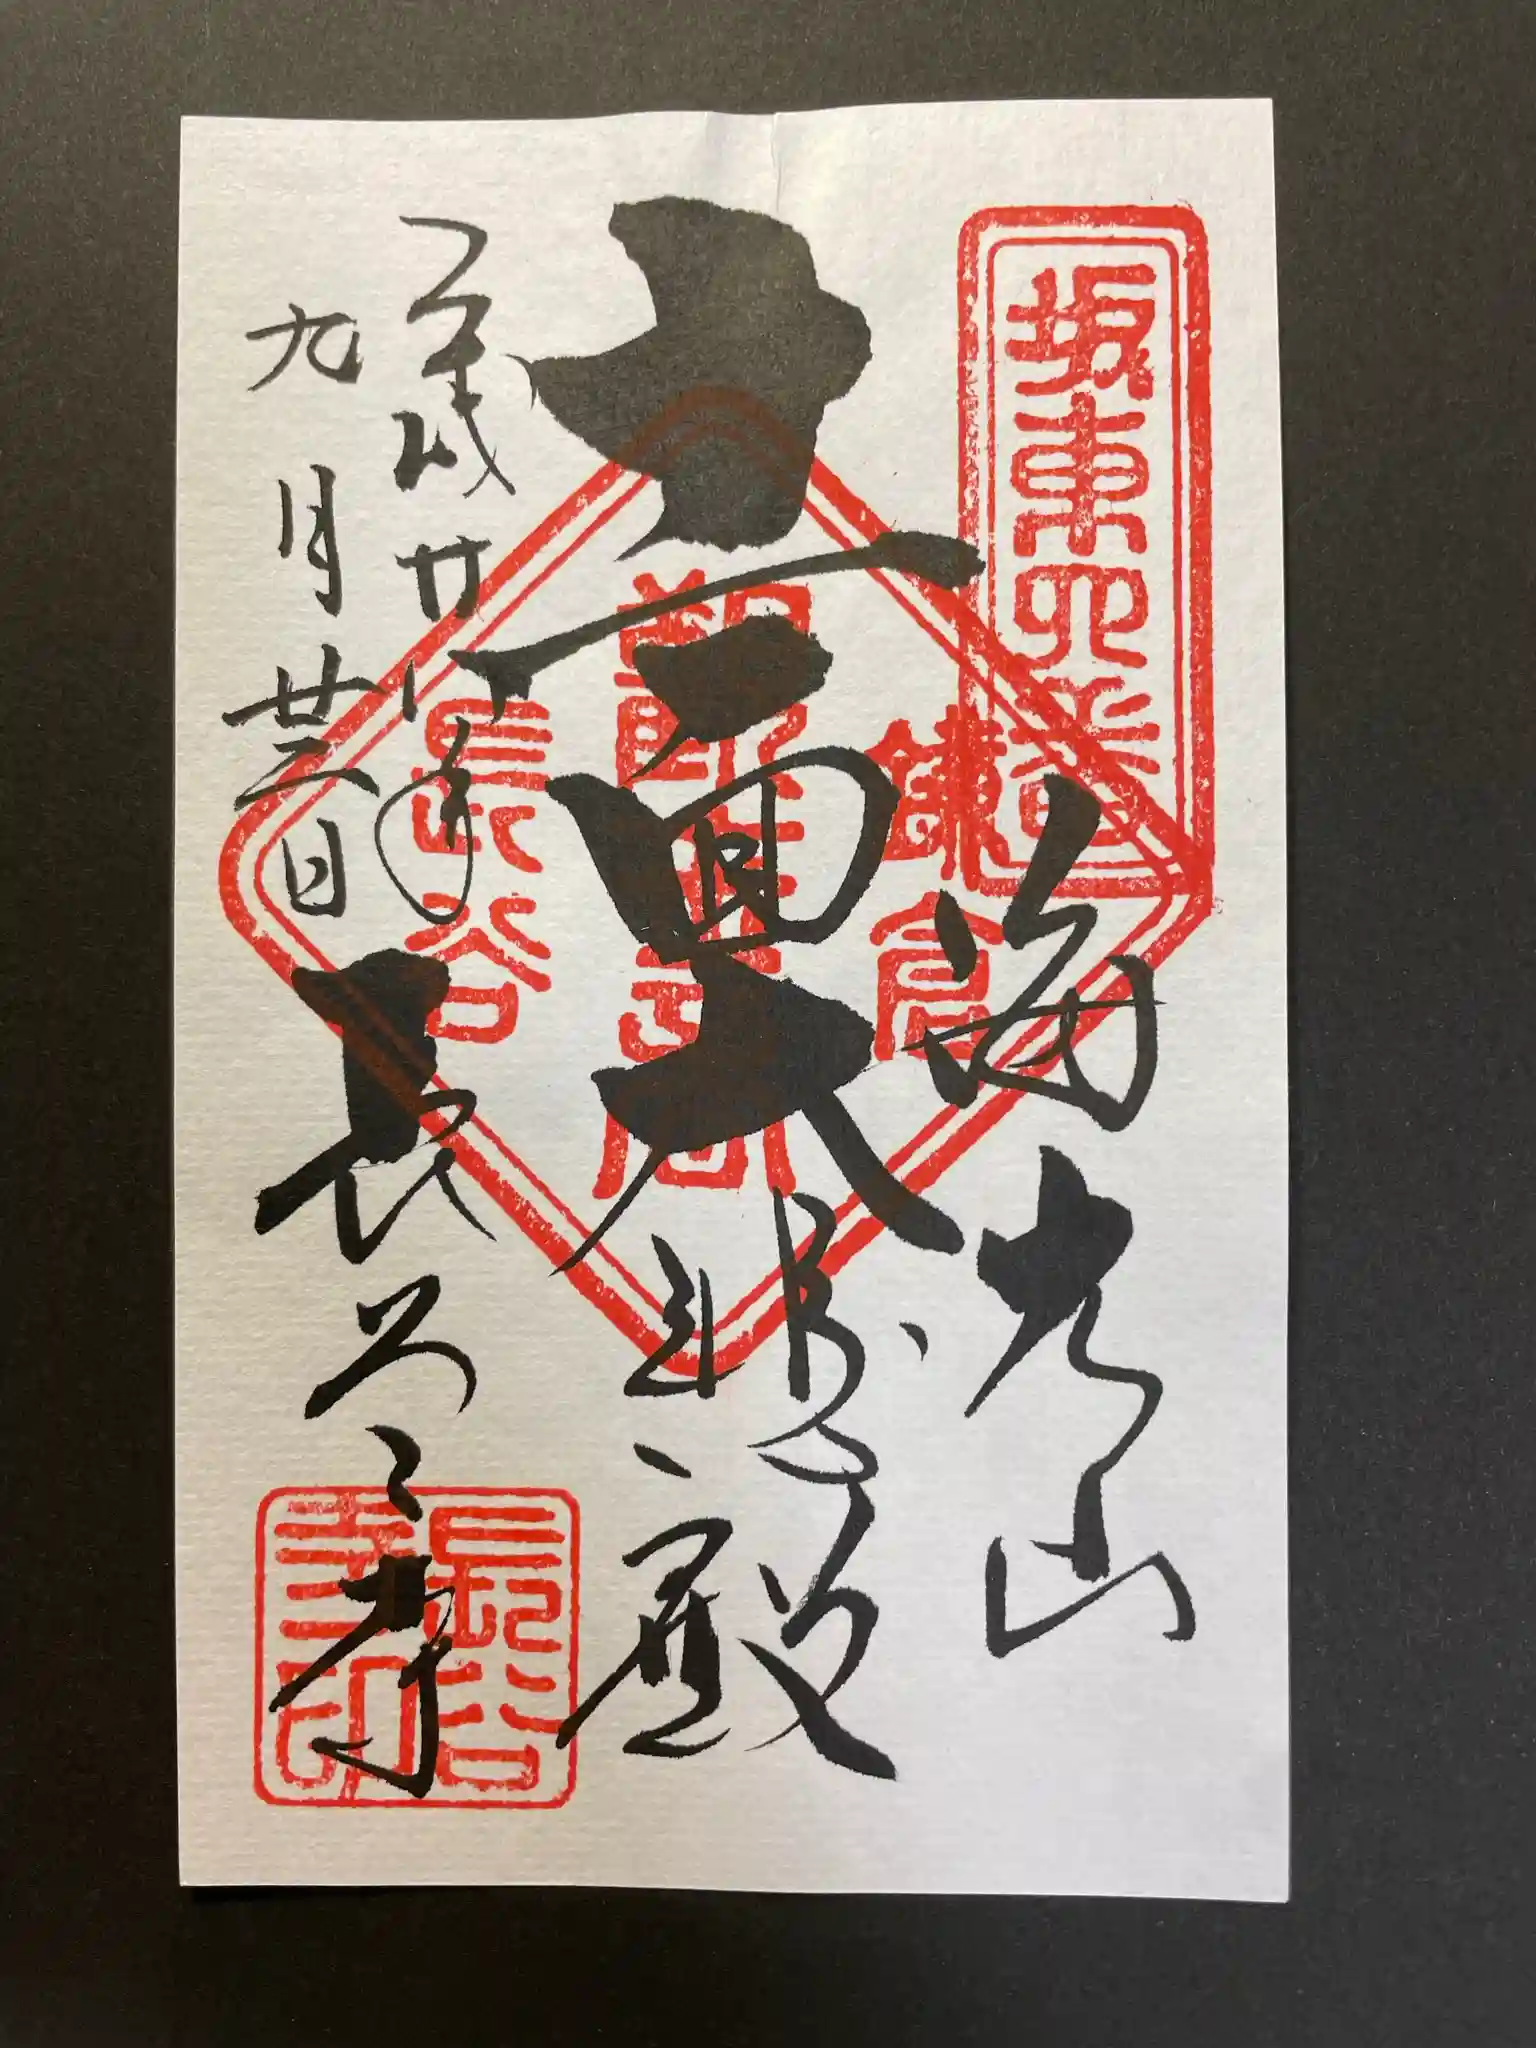 坂東四番
海光山
鎌倉
観世音
長谷
十一面大悲殿
平成廿八年
九月廿三日
長谷寺
長谷寺印